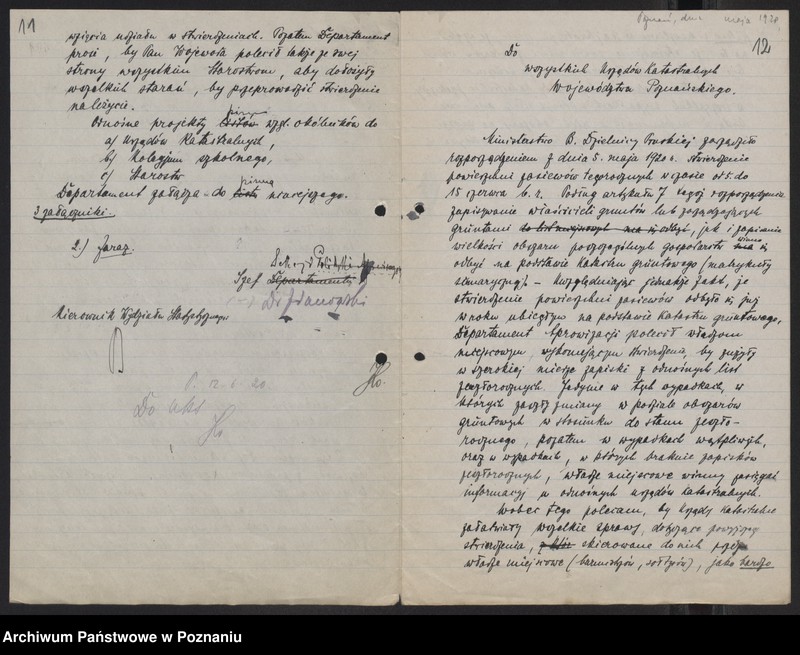 11
wzięcia udziału w stwierdzeniach. Pozatem Departament
prosi, by Pan Wojewoda polecił także ze swej
strony wszystkim Starostom, aby dołożyły
wszelkich starań, by przeprowadzić stwierdzenie
należycie.
pisma
Odnośne projekty listów wzgl. okólników do
a) Urzędów Katastralnych,
b) Kolegjum szkolnego,
c) Starostw
pisma
Departament załącza do listu niniejszego.
3 załączniki.
2.) zaraz.
Szef Departamentu
Kierownik Wydziału Statystycznego
Do akt
Poznań, dnia maja 1920
12
Do
wszystkich Urzędów Katastralnych
Województwa Poznańskiego.
Ministerstwo B. Dzielnicy Pruskiej zarządziło
rozporządzeniem z dnia 5. maja 1920 r. stwierdzenie
powierzchni zasiewów tegorocznych w czasie od 5. do
15 czerwca b. r. Podług artykułu 7 tegoż rozporządzenia
zapisywanie właścicieli gruntów lub zarządzających
gruntami do list miejscowych ma się odbyć, jak i zapisanie
wielkości obszaru poszczególnych gospodarstw ma się
winno
odbyć na podstawie katastru gruntowego (matrykuły
). Uwzględniając jednakże fakt, że
stwierdzenie powierzchni zasiewów odbyło się już
w roku ubiegłym na podstawie katastru gruntowego,
Departament Aprowizacji polecił władzom
miejscowym, wykonującym stwierdzenia, by zużyły
w szerokiej mierze zapiski z odnośnych list
zeszłorocznych. Jedynie w tych wypadkach, w
których zaszły zmiany w podziale obszarów
gruntowych w stosunku do stanu zeszło-
rocznego, pozatem w wypadkach wątpliwych,
oraz w wypadkach, w których braknie zapisków
zeszłorocznych, władze miejscowe winny zasięgać
informacyj u odnośnych urzędów katastralnych.
Wobec tego polecam, by Urzędy Katastralne
załatwiały wszelkie sprawy, dotyczące powyższego
stwierdzenia, skierowane do nich przez
władze miejscowe (burmistrzów, sołtysów), jako bardzo
Archiwum Państwowe w Poznaniu